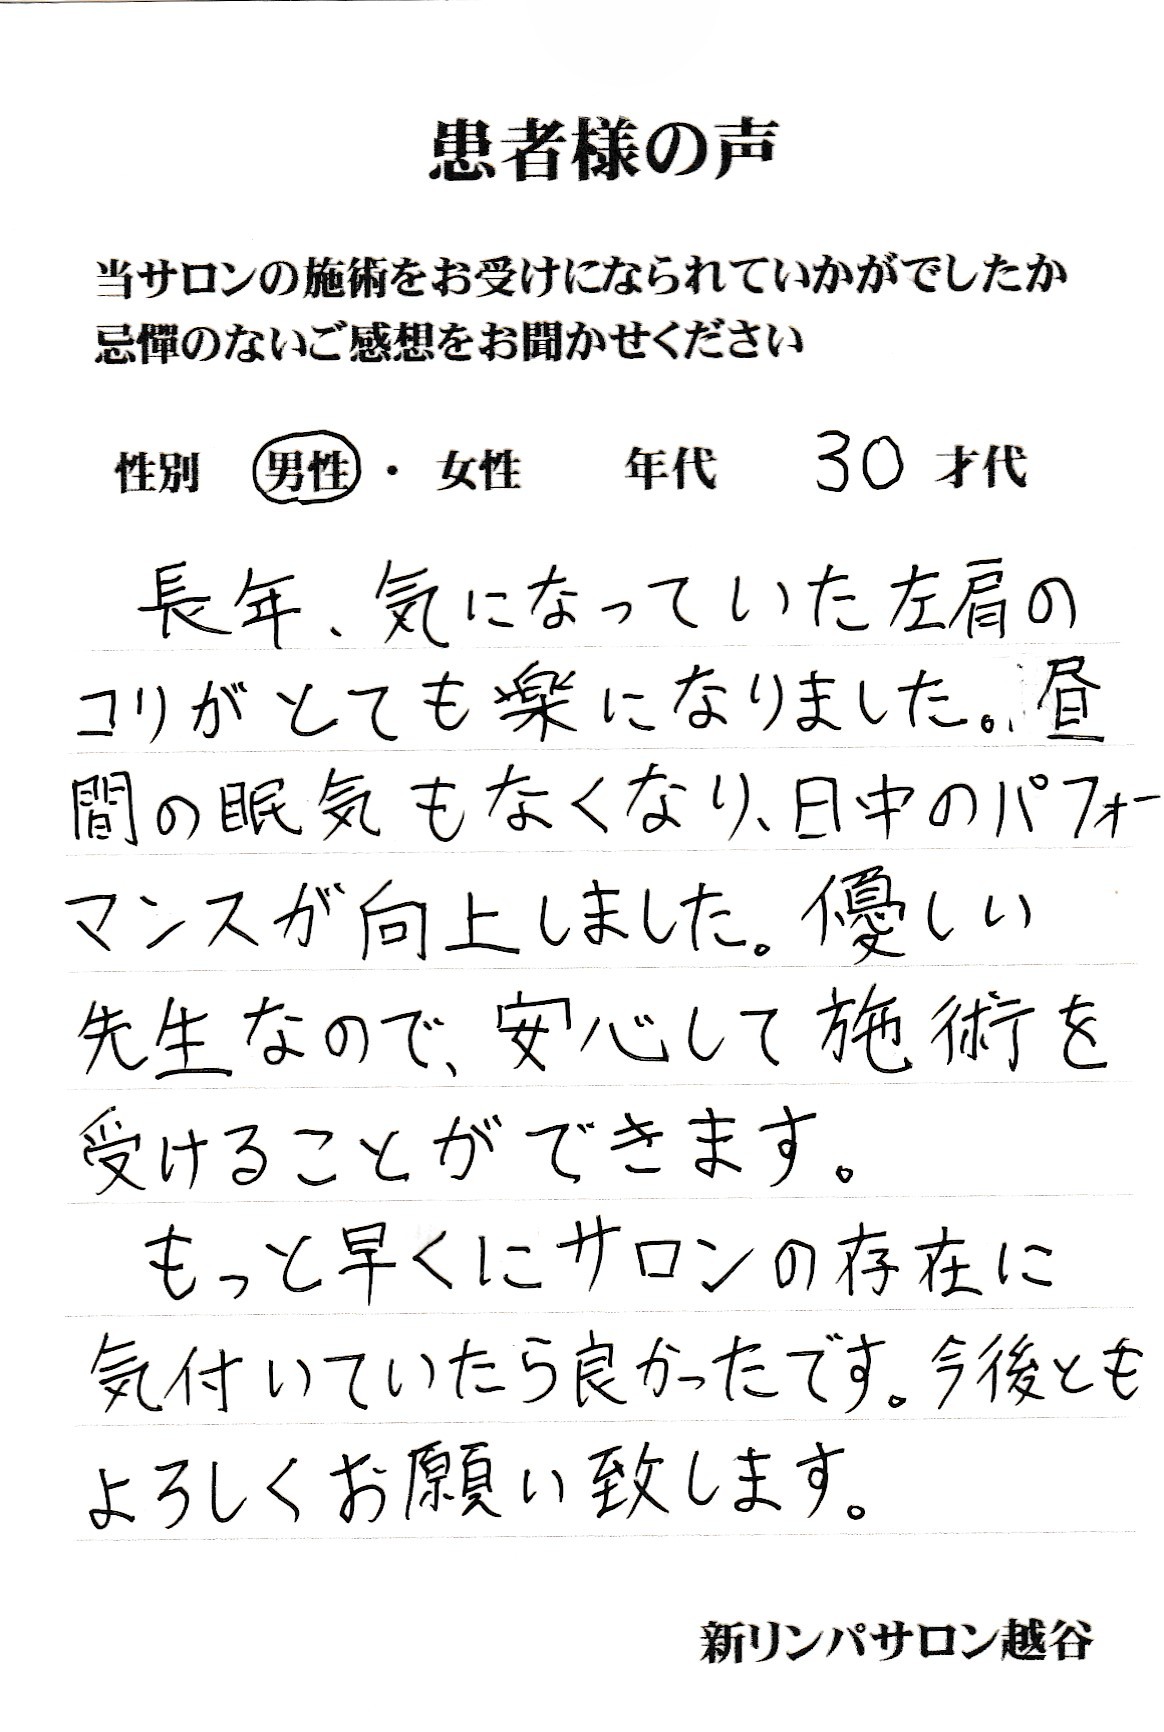 患者様の声
当サロンの施術をお受けになられていかがでしたか
忌憚のないご感想をお聞かせください
性別 男性・女性 年代 30 才代
長年、気になっていた左肩の
コリがとても楽になりました。昼
間の眠気もなくなり、日中のパフォー
マンスが向上しました。優しい
先生なので、安心して施術を
受けることができます。
もっと早くにサロンの存在に
気付いていたら良かったです。今後とも
よろしくお願い致します。
新リンパサロン越谷